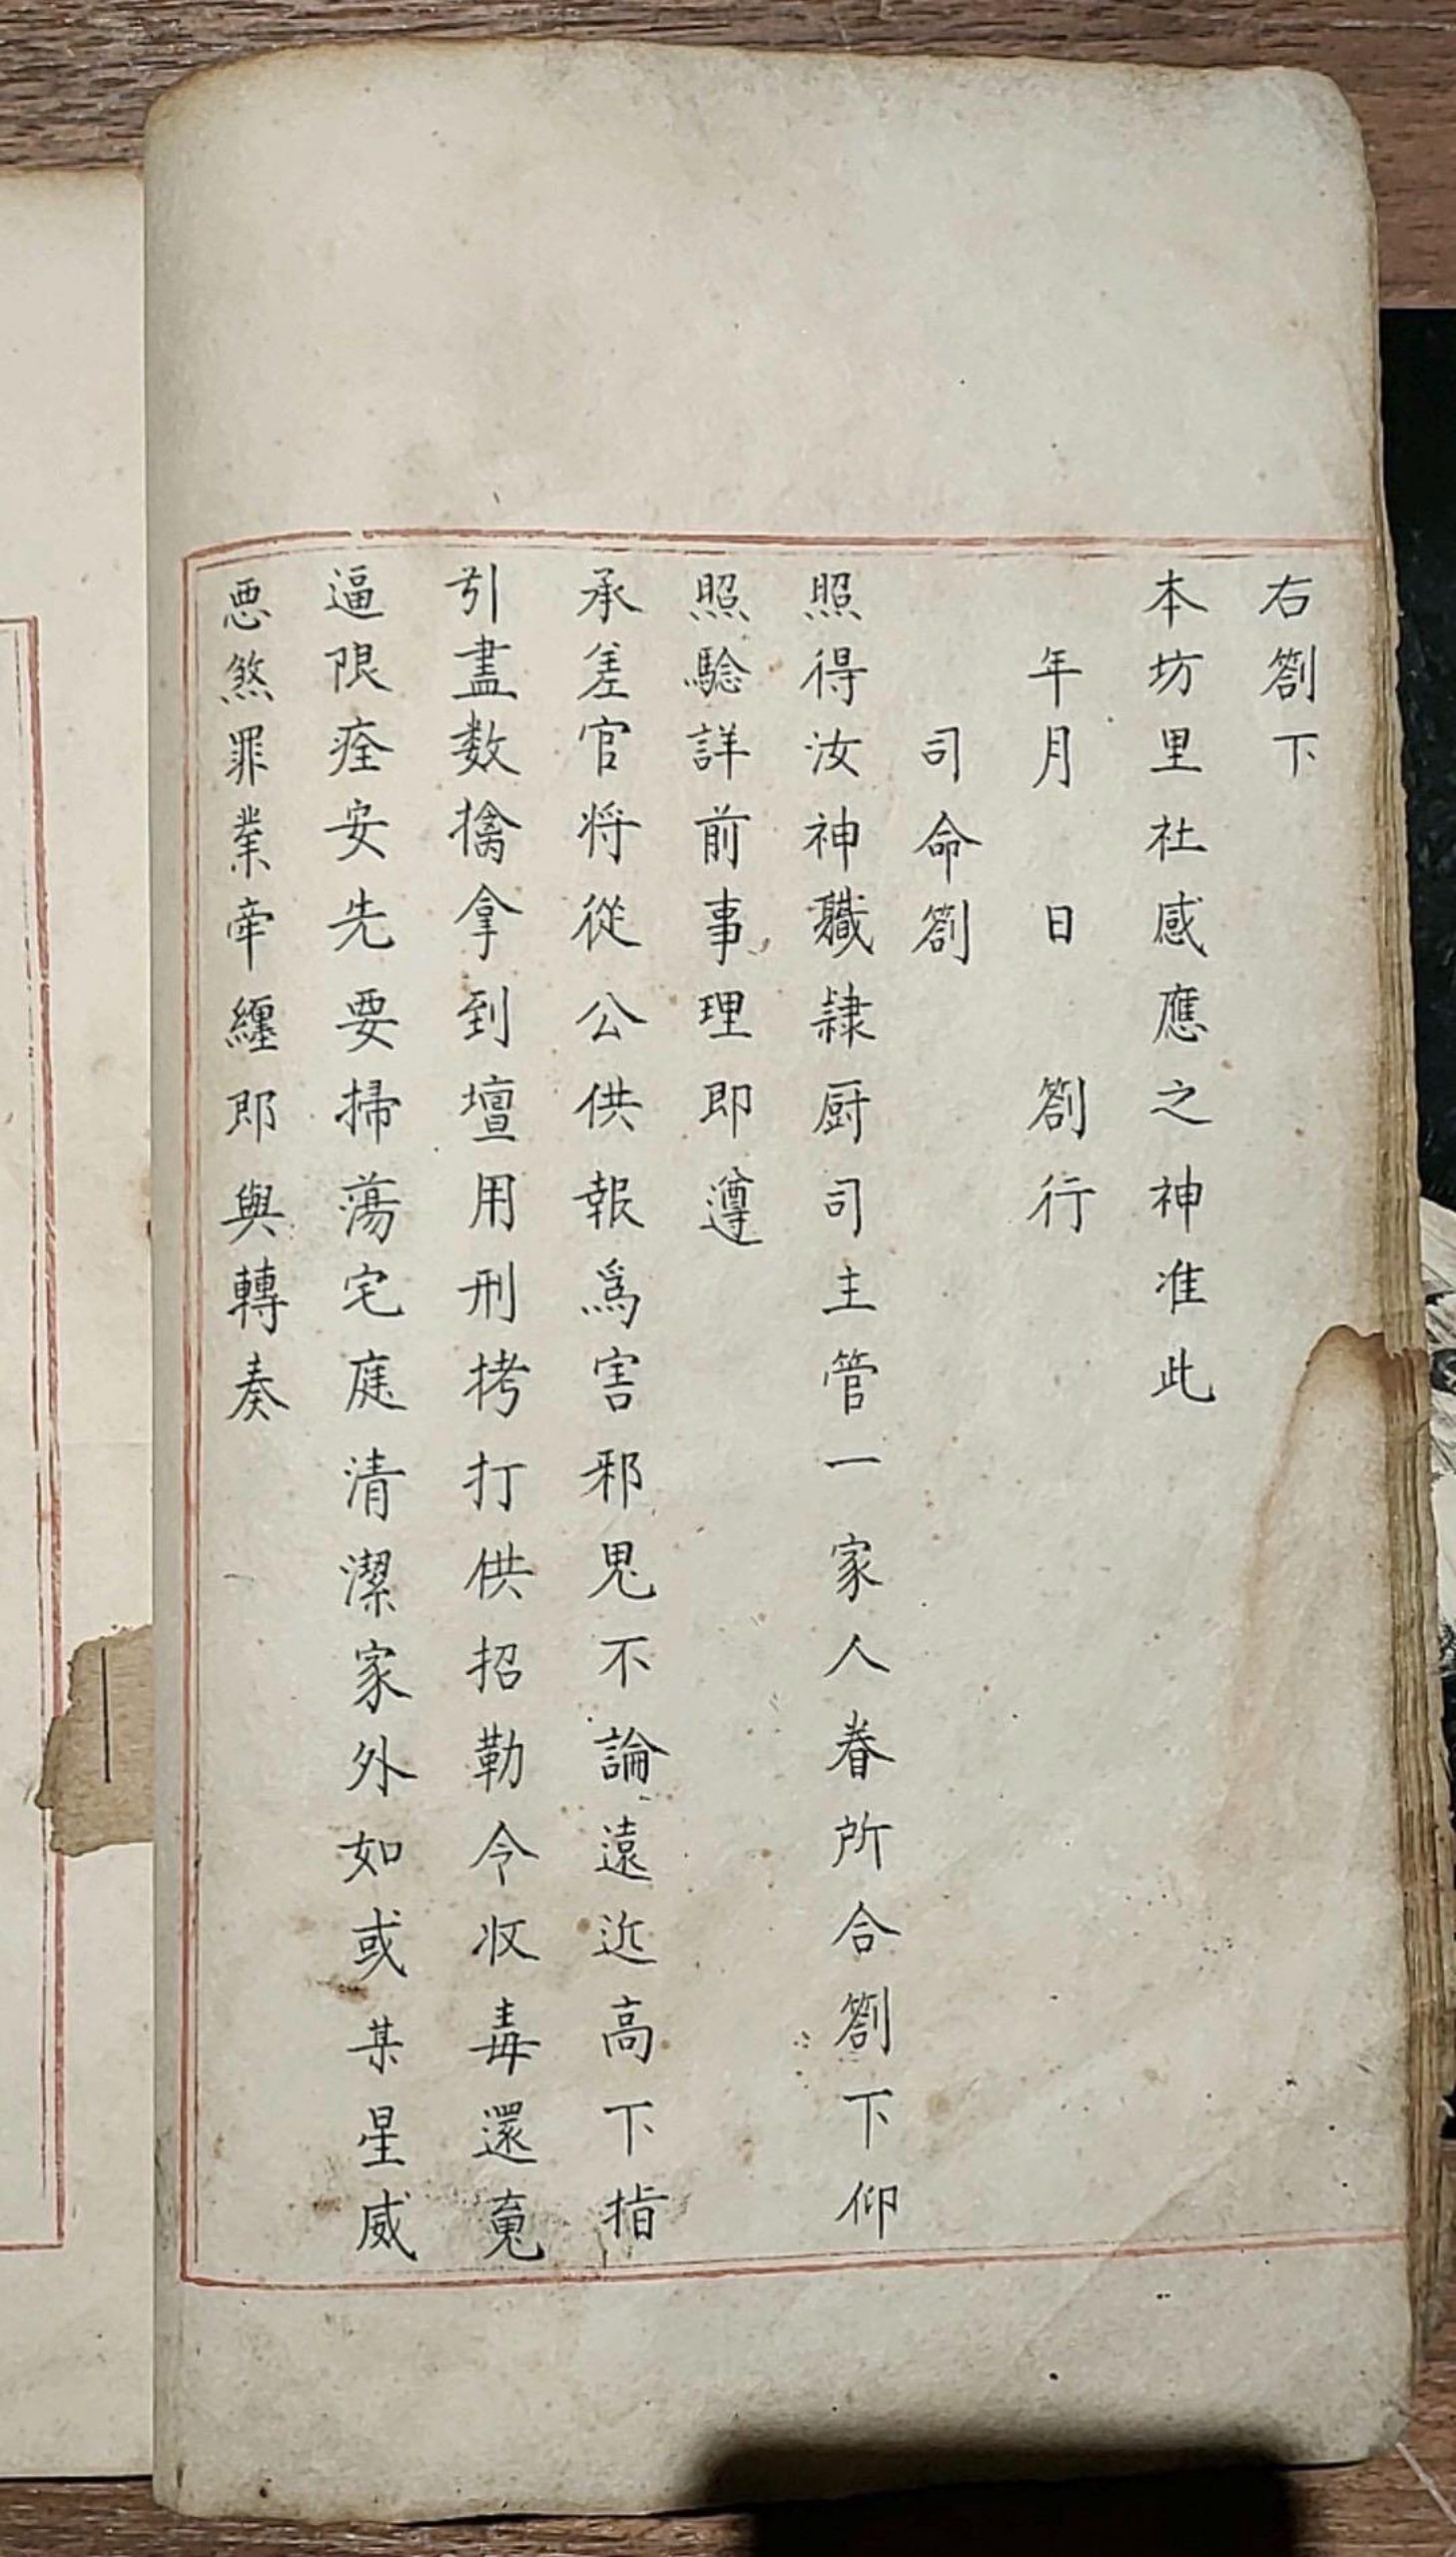 右劄下
本坊里社感應之神准此
年月日劄行
司命劄
照得汝神職隸厨司主管一家人眷所合劄下仰
照騐詳前事理即遵
承差官将從公供報為害邪鬼不論遠近高下指
引盡数擒拿到壇用刑拷打供招勒令收毒還魂
逼限痊安先要掃蕩宅庭清潔家外如或某星威
悪煞罪業牽纏即與轉奏